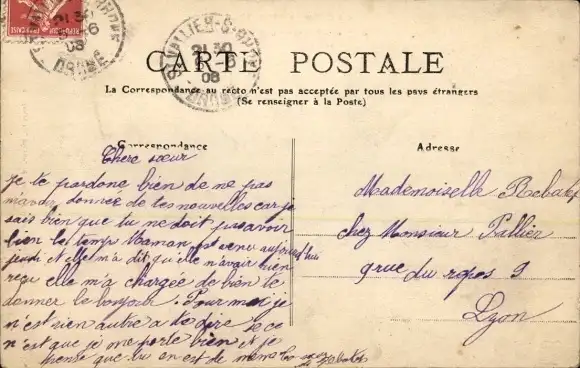 ST VALLIER-S-RHONE
21 30
6
08
DROME
CARTE POSTALE
La Correspondance au recto n'est pas acceptée par tous les pays étrangers
(Se renseigner à la Poste)
Correspondance
Adresse
Chere sœur
je te pardone bien de ne pas
donner de tes nouvelles car je
sais bien que tu ne doit pas avoir
bien le temps Maman est venu aujourd'hui
jeudi et elle m'a dit qu'elle n'avair bien
reçu elle m'a chargée de bien te
donner le bonjour. Pour moi je
n'est rien autre a te dire se ce
n'est que je me porte bien et je
pense que toi on est de meme
Mademoiselle
chez Monsieur Pallier
9 rue du repos 9
Lyon